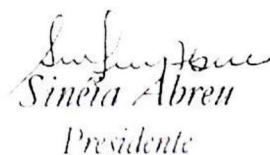 Sineia Abreu
Presidente